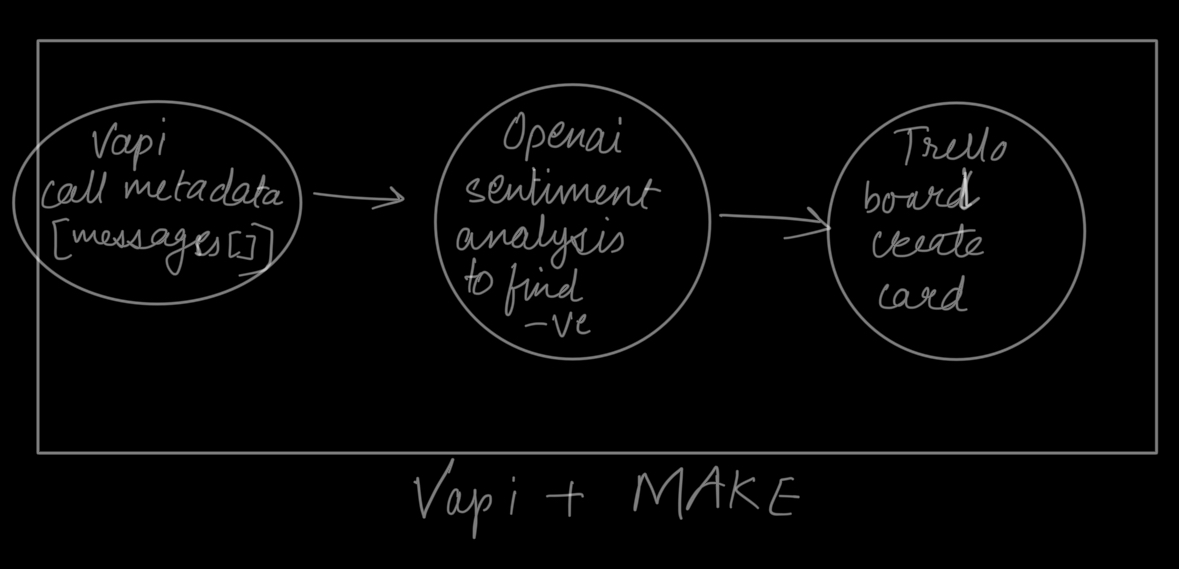 Vapi
call metadata
[messages[]]
Openai
sentiment
analysis
to find
-ve
Trello
board
create
card
Vapi + MAKE